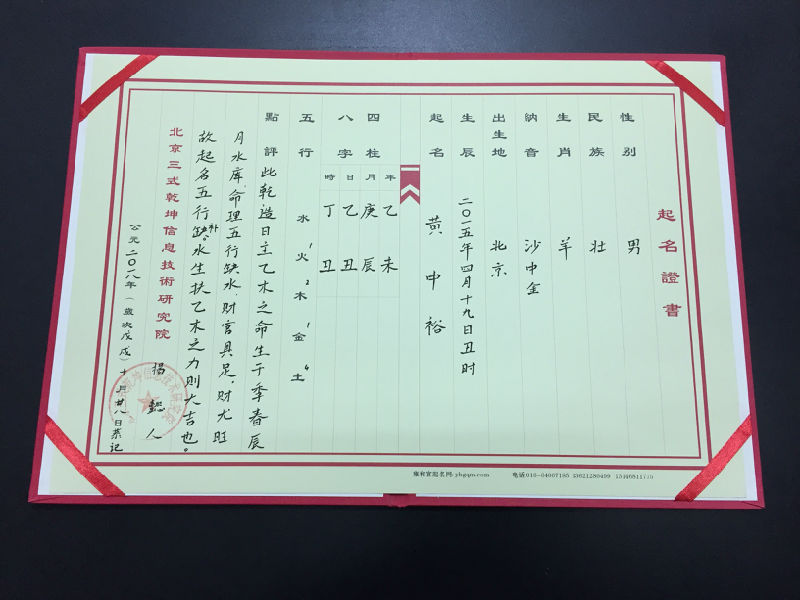 起名證書
性別 男
民族 壮
生肖 羊
納音 沙中金
出生地 北京
生辰 二〇一五年四月十九日丑时
起名 黄中裕
年 月 日 時
四柱
八字
乙未
庚辰
乙丑
丁丑
五行 水 火1 木2 金1 土4
點評 此乾造日主乙木之命生于季春辰
月水库,命理五行缺水,财官具足,财尤旺
故起名五行补缺。水生扶乙木之力则大吉也。
北京三式乾坤信息技術研究院
楊懿人
公元二〇一八年(歲次戊戌)十月廿八日恭记
雍和宫起名网: yhgqm.com